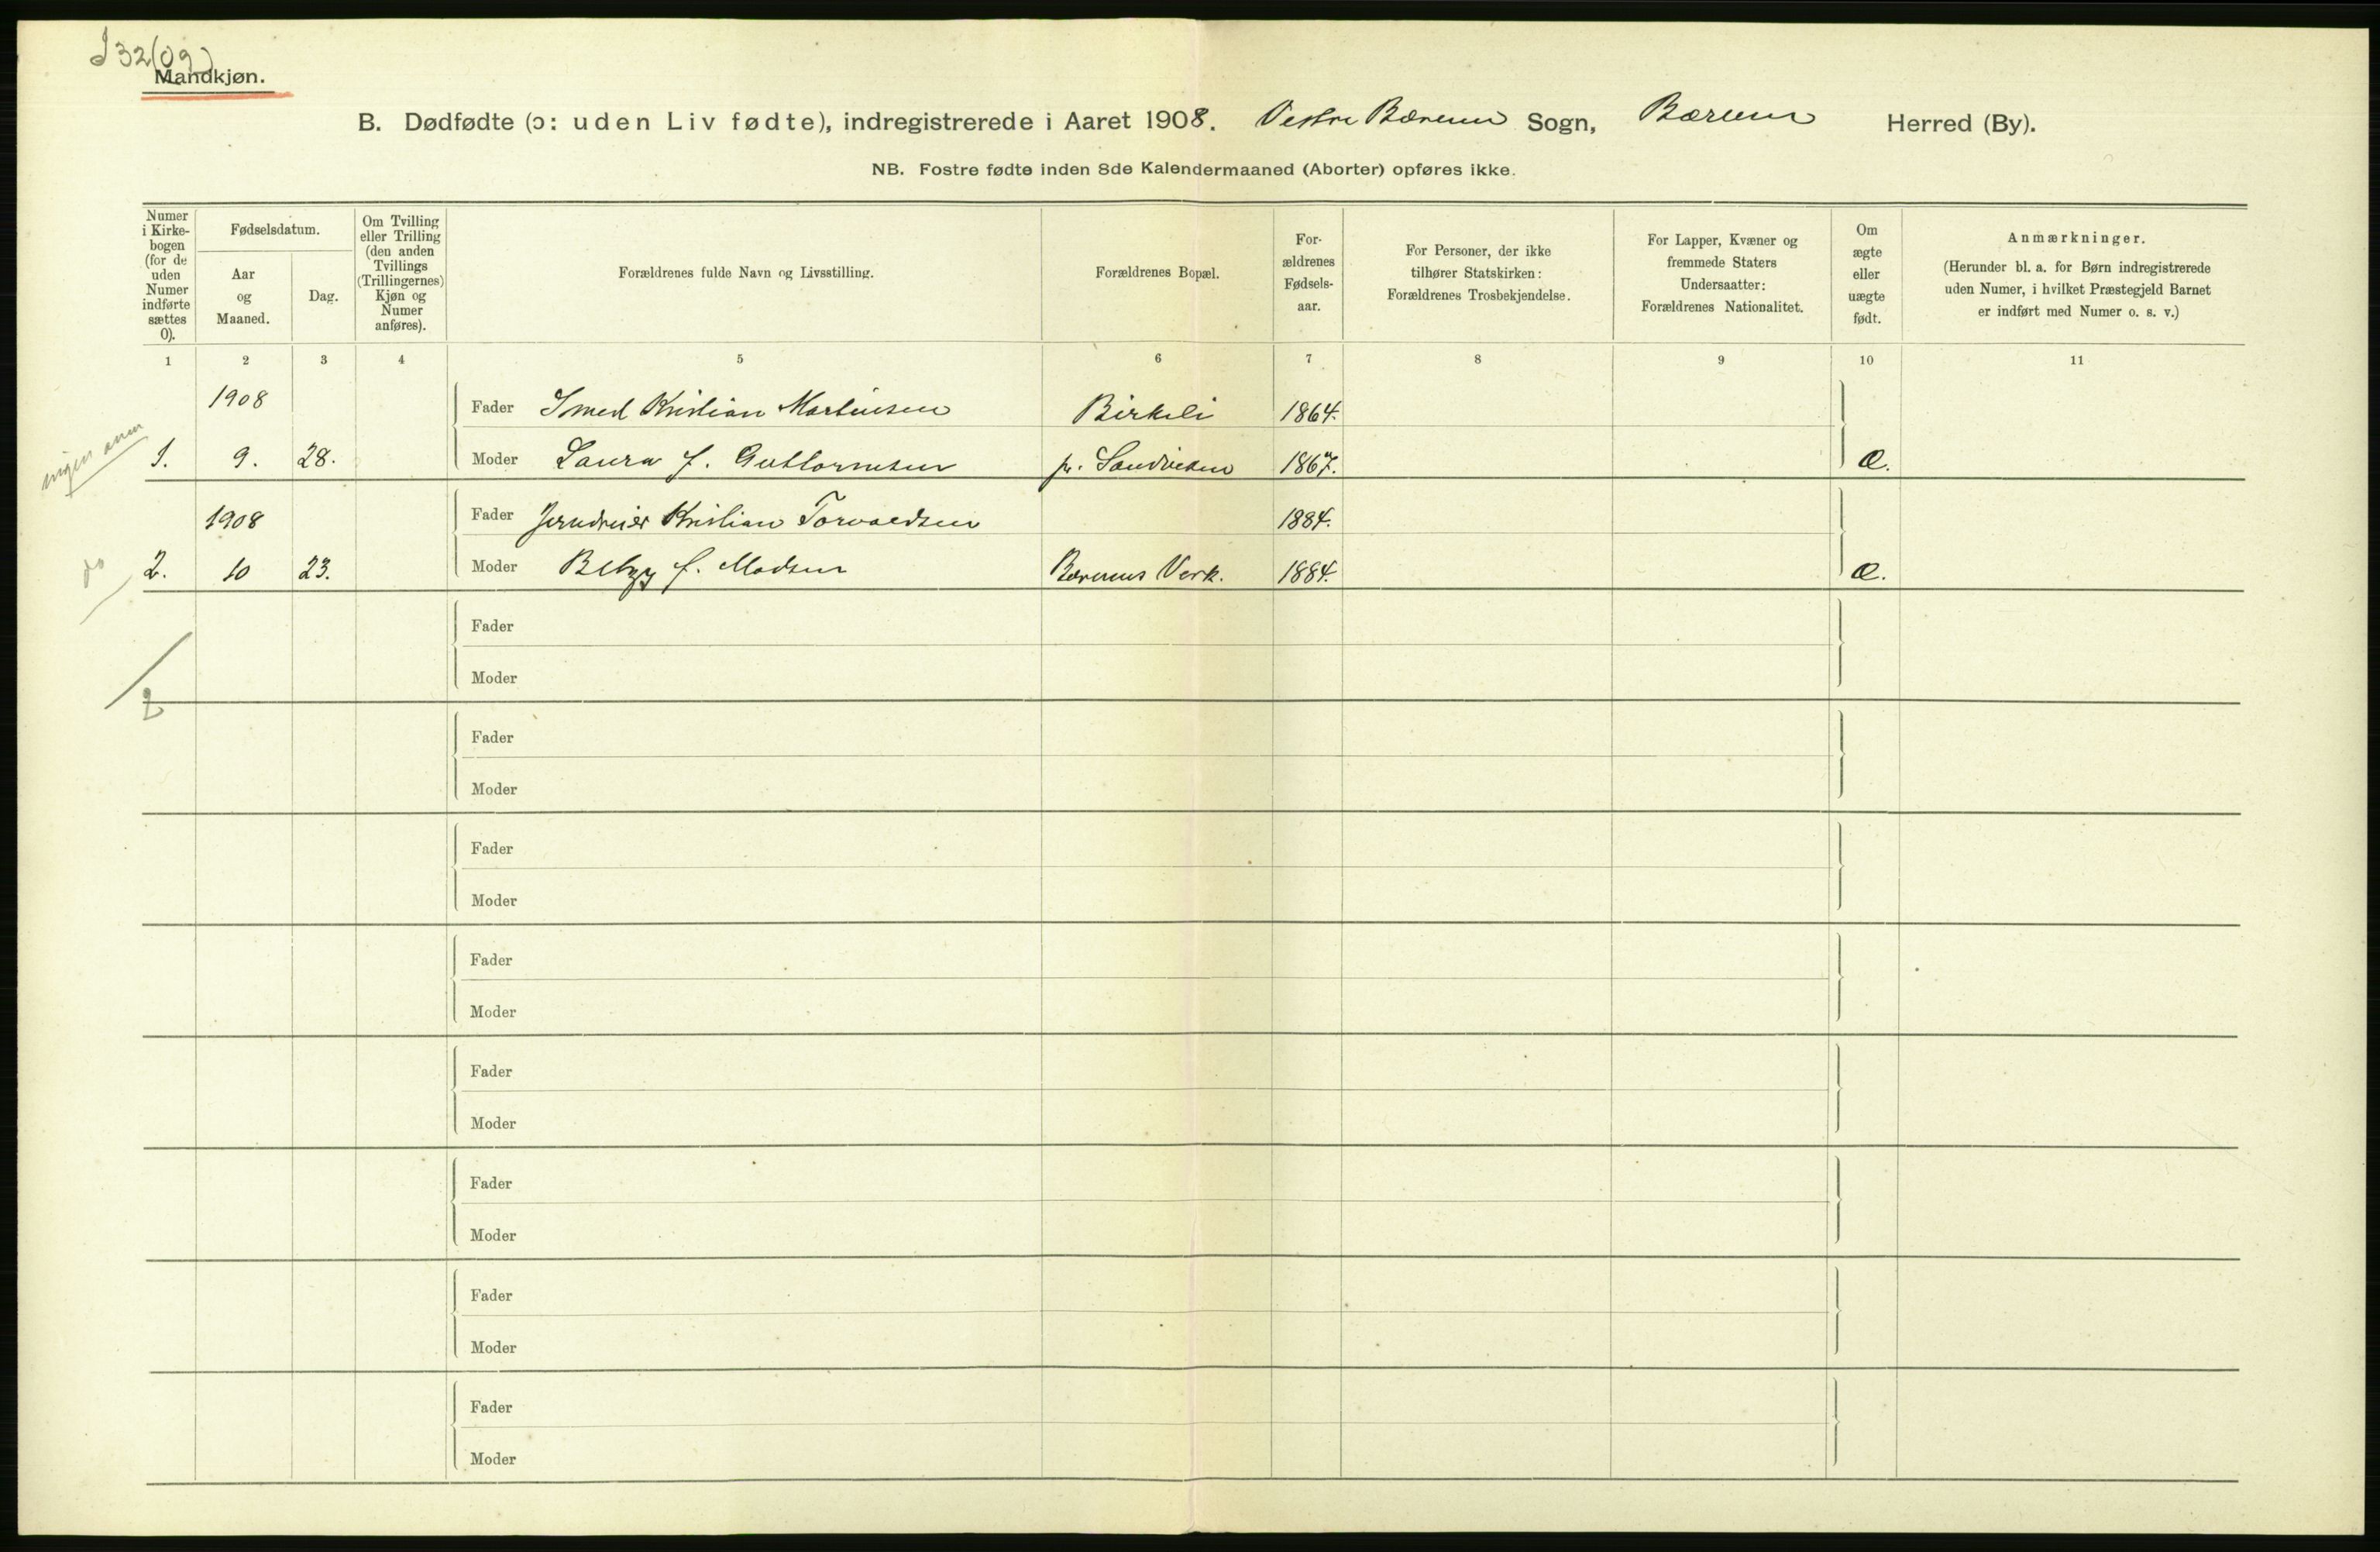 J 32(09)
Mandkjøn.
B. Dødfødte (ɔ: uden Liv fødte), indregistrerede i Aaret 1908. Vestre Bærum Sogn, Bærum Herred (By).
NB. Fostre fødte inden 8de Kalendermaaned (Aborter) opføres ikke.
Numer
i Kirke-
bogen
(for de
uden
Numer
indførte
sættes
0).
Fødselsdatum.
Aar
og
Maaned.
Dag.
Om Tvilling
eller Trilling
(den anden
Tvillings
(Trillingernes)
Kjøn og
Numer
anføres).
Forældrenes fulde Navn og Livsstilling.
Forældrenes Bopæl.
For-
ældrenes
Fødsels-
aar.
For Personer, der ikke
tilhører Statskirken:
Forældrenes Trosbekjendelse.
For Lapper, Kvæner og
fremmede Staters
Undersaatter:
Forældrenes Nationalitet.
Om
ægte
eller
uægte
født.
Anmærkninger.
(Herunder bl. a. for Børn indregistrerede
uden Numer, i hvilket Præstegjeld Barnet
er indført med Numer o. s. v.)
1 2 3 4 5 6 7 8 9 10 11
1908 Fader Smed Kristian Martinsen Birkeli 1864.
ingen anm
1. 9. 28. Moder Laura f. Guttormsen pr. Sandviken 1867. Æ.
1908 Fader Jerndreier Kristian Torvaldsen 1884.
do
2. 10 23. Moder Betzy f. Madsen Bærums Verk. 1884. Æ.
Fader
Moder
2
Fader
Moder
Fader
Moder
Fader
Moder
Fader
Moder
Fader
Moder
Fader
Moder
Fader
Moder